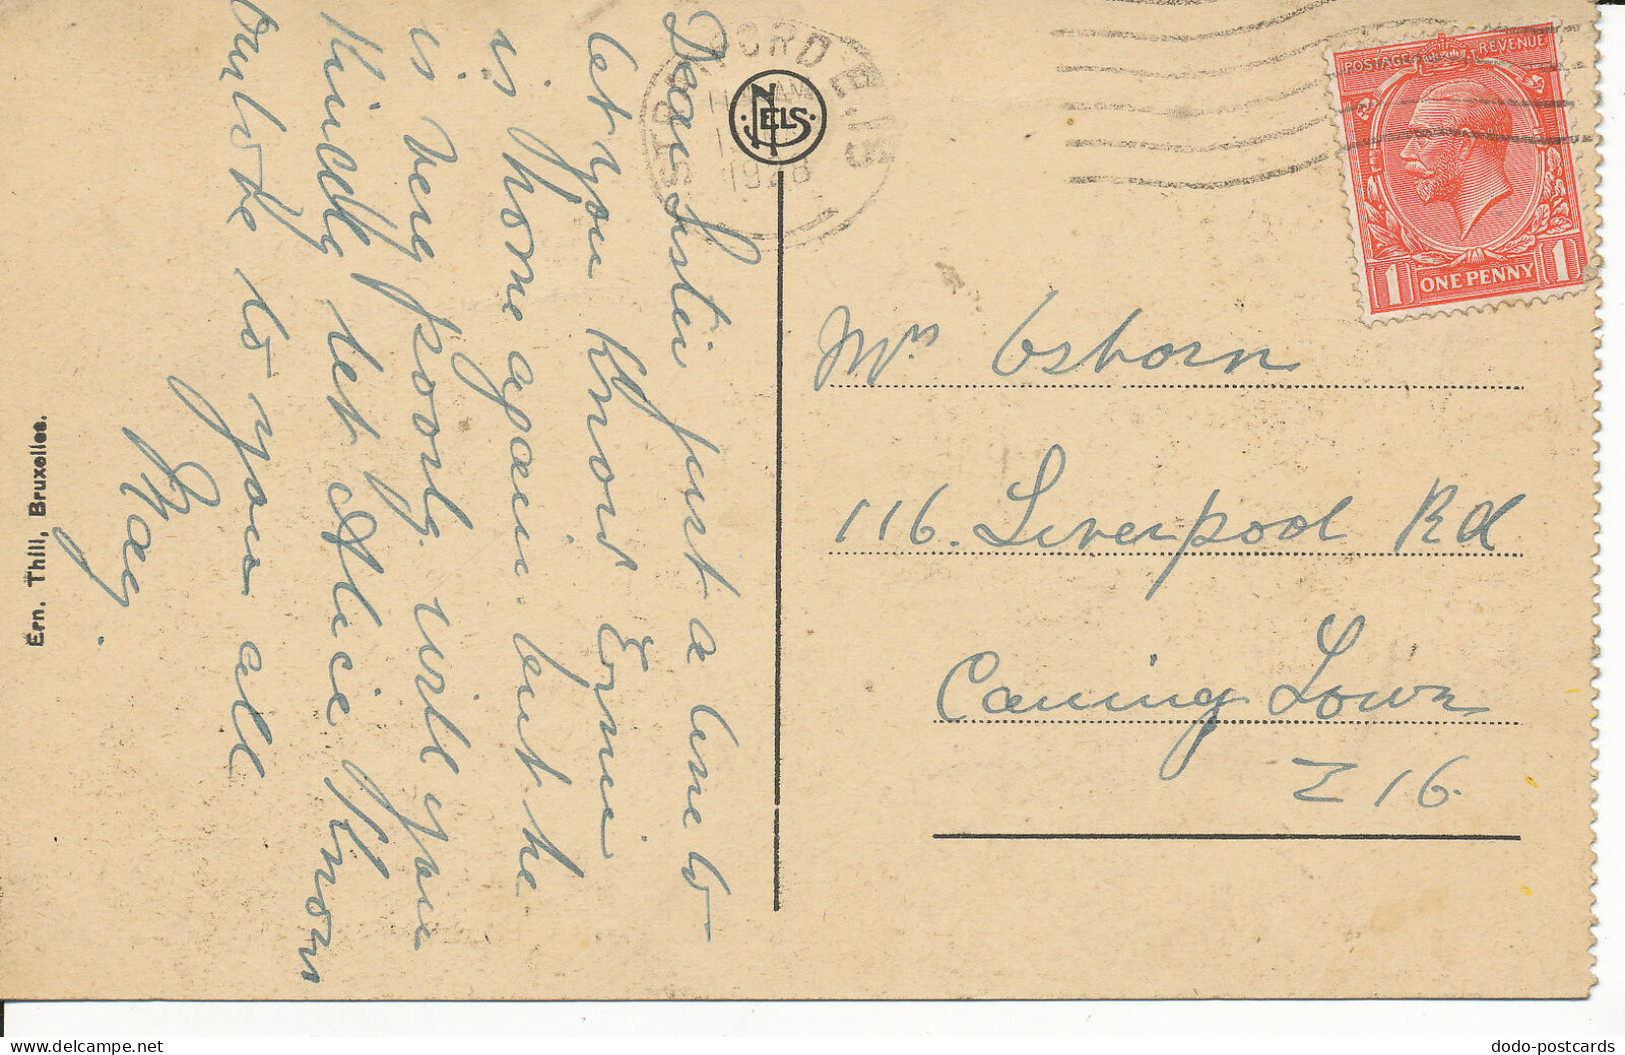 Dear Sister just a line to
let you know Ernie
is home again. but he
is very poorly. will you
kindly let Alice know
love to you all
May.
Ern. Thill, Bruxelles.
NELS
STRATFORD E.15
AM
1928
POSTAGE REVENUE
1 ONE PENNY 1
Mrs Osborn
116. Liverpool Rd
Caning Town
E 16.
delcampe.net
dodo-postcards